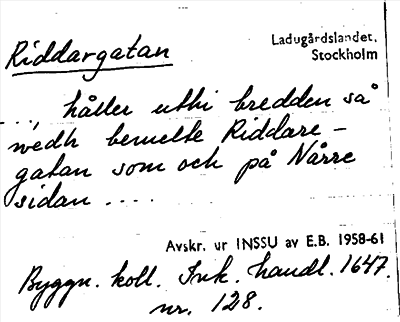 Riddargatan
Ladugårdslandet.
Stockholm
..., håller uthi bredden så
wedh bemelte Riddare-
gatan som och på Nårre
sidan ....
Avskr. ur INSSU av E.B. 1958-61
Byggn. koll. Ink. handl. 1647.
nr. 128.